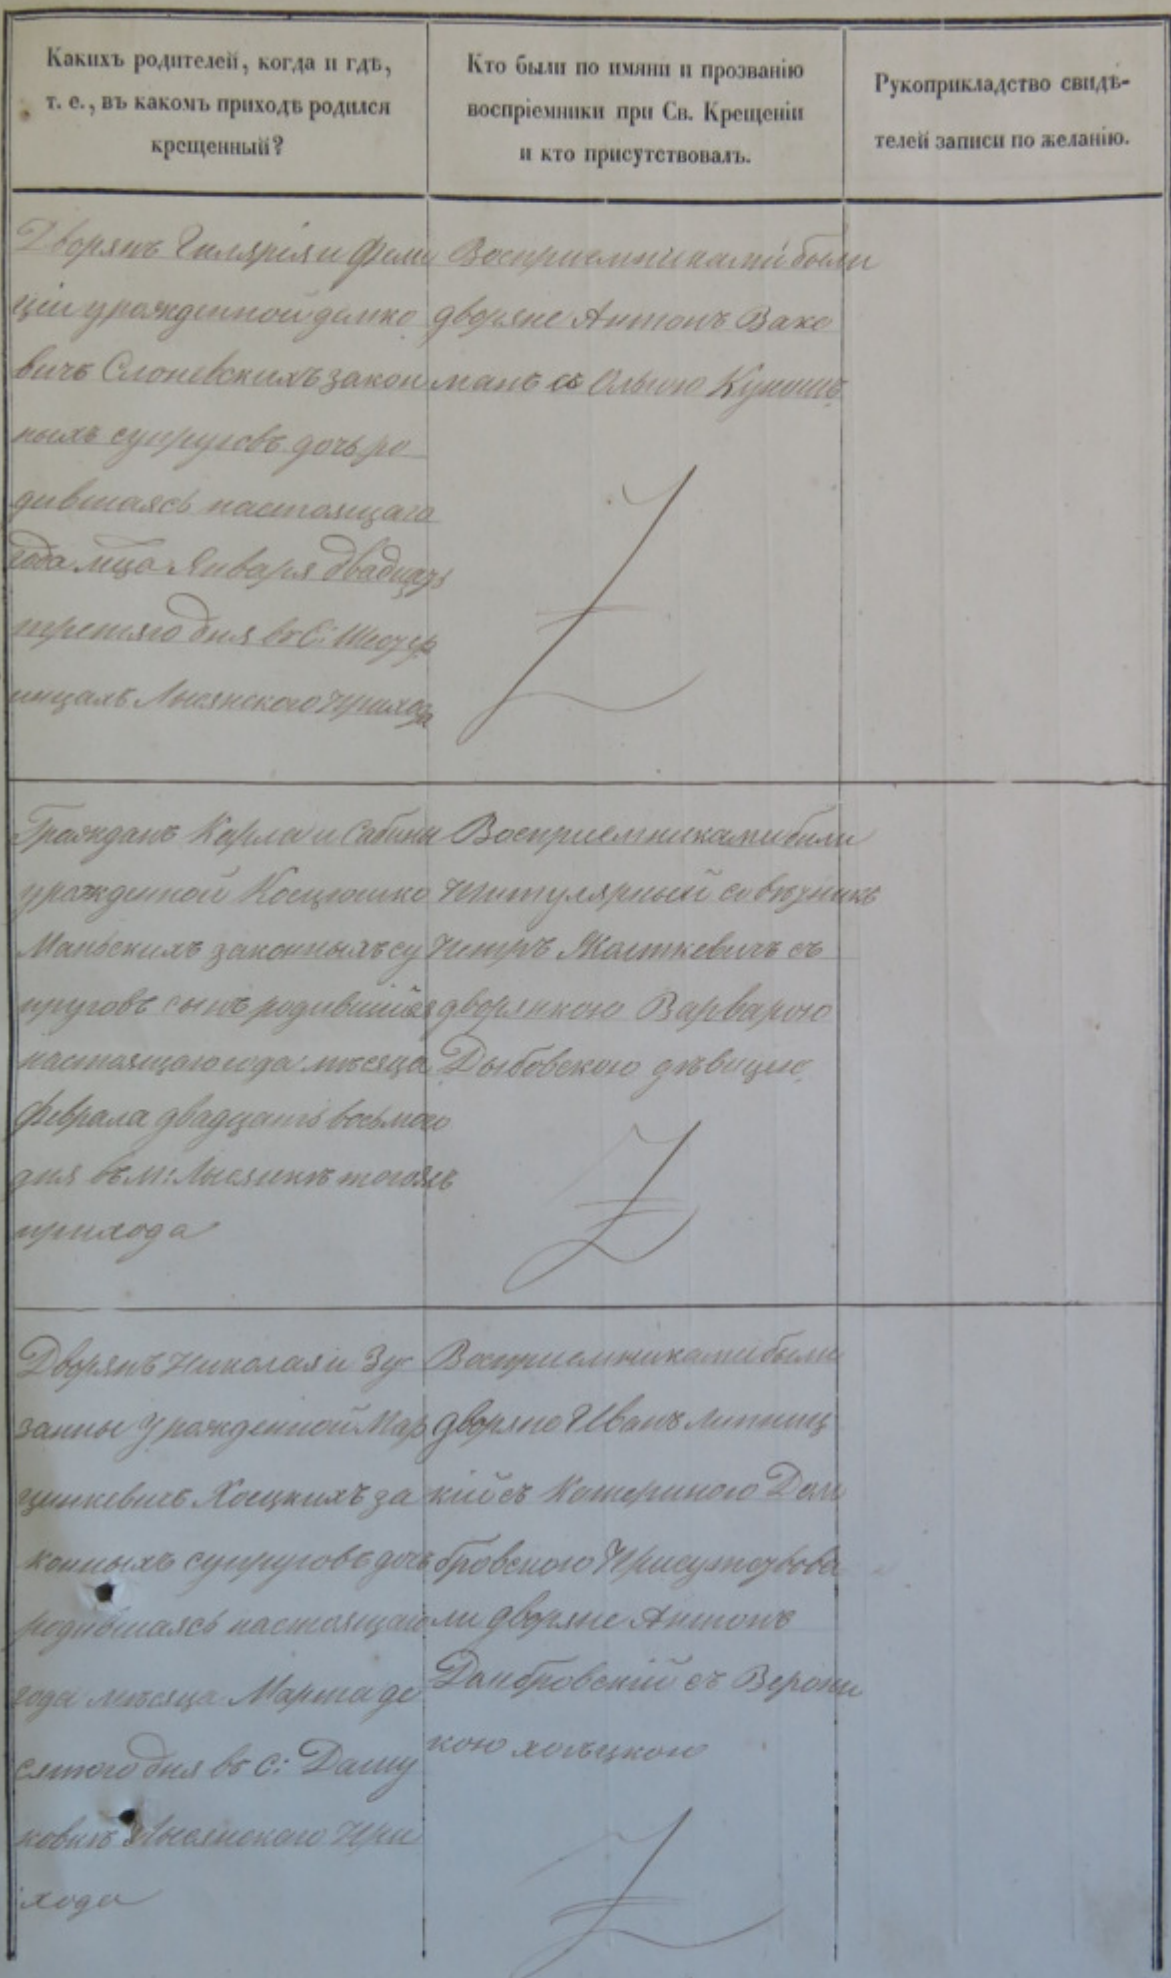 Какихъ родителей, когда и гдѣ,
т. е., въ какомъ приходѣ родился
крещенный?
Кто были по имяни и прозванію
воспріемники при Св. Крещеніи
и кто присутствовалъ.
Рукоприкладство свидѣ-
телей записи по желанію.
Дворянъ Гилярія и Фели
ціи урожденной
вичъ Слоневскихъ закон
ныхъ супруговъ дочь ро
дившаясь настоящаго
года мца Января двадцать
третяго дня въ с:
Лысянского прихода
Восприемниками были
дворяне Антонъ Вако
манъ съ Ольгою
Гражданъ Карла и Сабины
урожденной Косцюшко
Маньскихъ законныхъ су
пруговъ сынъ родившийся
настоящаго года мѣсяца
февраля двадцать восьмого
дня въ м: Лысянкѣ тогожъ
прихода
Восприемниками были
титулярный совѣтникъ
Петръ съ
дворянкою Варварою
Дыбовскою дѣвицею
Дворянъ Николая и Зу
занны урожденной Мар
цинкевичъ Хоецкихъ за
конныхъ супруговъ дочь
родившаясь настоящаго
года мѣсяца Марта де
сятого дня въ с: Дашу
ковкѣ Лысянского при
хода
Восприемниками были
дворяне Иванъ Липниц
кій съ Катериною Дом
бровскою Присутствова
ли дворяне Антонъ
Домбровскій съ Верони
кою